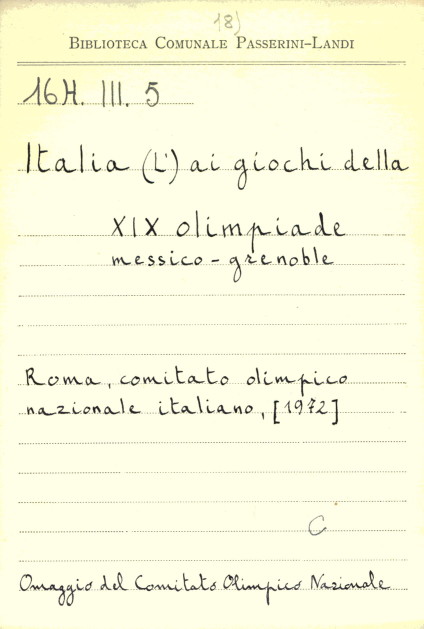 18)
BIBLIOTECA COMUNALE PASSERINI-LANDI
16H. III. 5
Italia (L') ai giochi della
XIX olimpiade
messico - grenoble
Roma, comitato olimpico
nazionale italiano, [1972]
C
Omaggio del Comitato Olimpico Nazionale